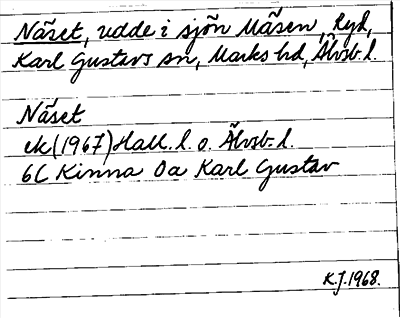 Näset, udde i sjön Måsen, Ryd,
Karl Gustavs sn, Marks hd, Älvsb. l.
Näset
ek (1967) Hall. l. o. Älvsb. l.
6C Kinna 0a Karl Gustav
K.J. 1968.